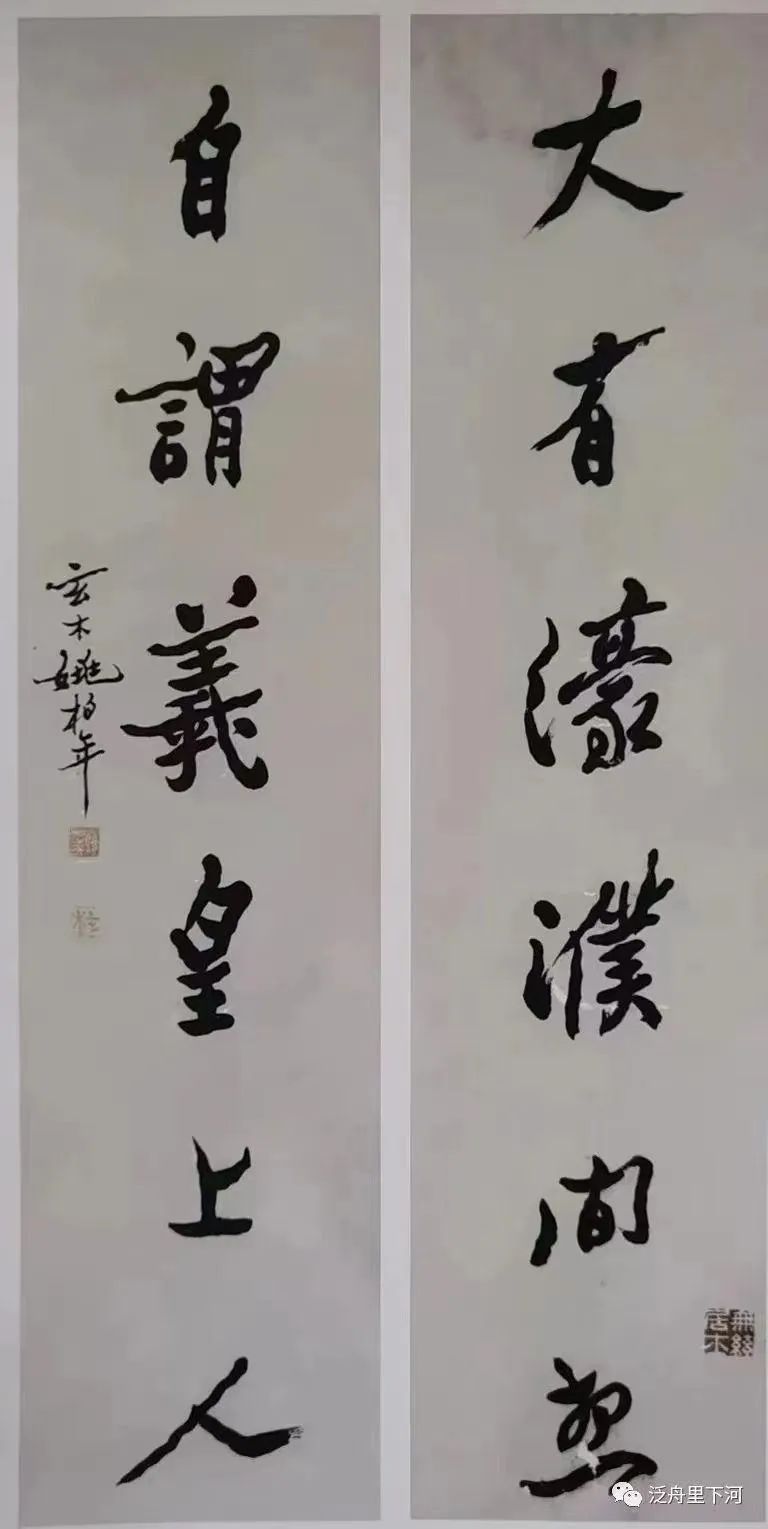 大有濠濮间想
自謂羲皇上人
玄木姚柏年
泛舟里下河